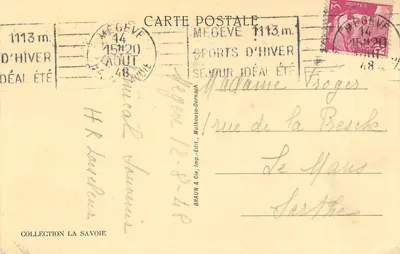 CARTE POSTALE
1113 m.
D'HIVER
IDÉAL ÉTÉ
MEGÈVE
14
15H20
AOUT
48
MEGÈVE 1113 m.
SPORTS D'HIVER
SÉJOUR IDÉAL ÉTÉ
MEGÈVE
14
15H20
48
Madame Froger
rue de la
Le Mans
Sarthe
Megève 12-8-48
Amical Souvenir
H R
BRAUN & Cie, Imp.-Édit., Mulhouse-Dornach
COLLECTION LA SAVOIE